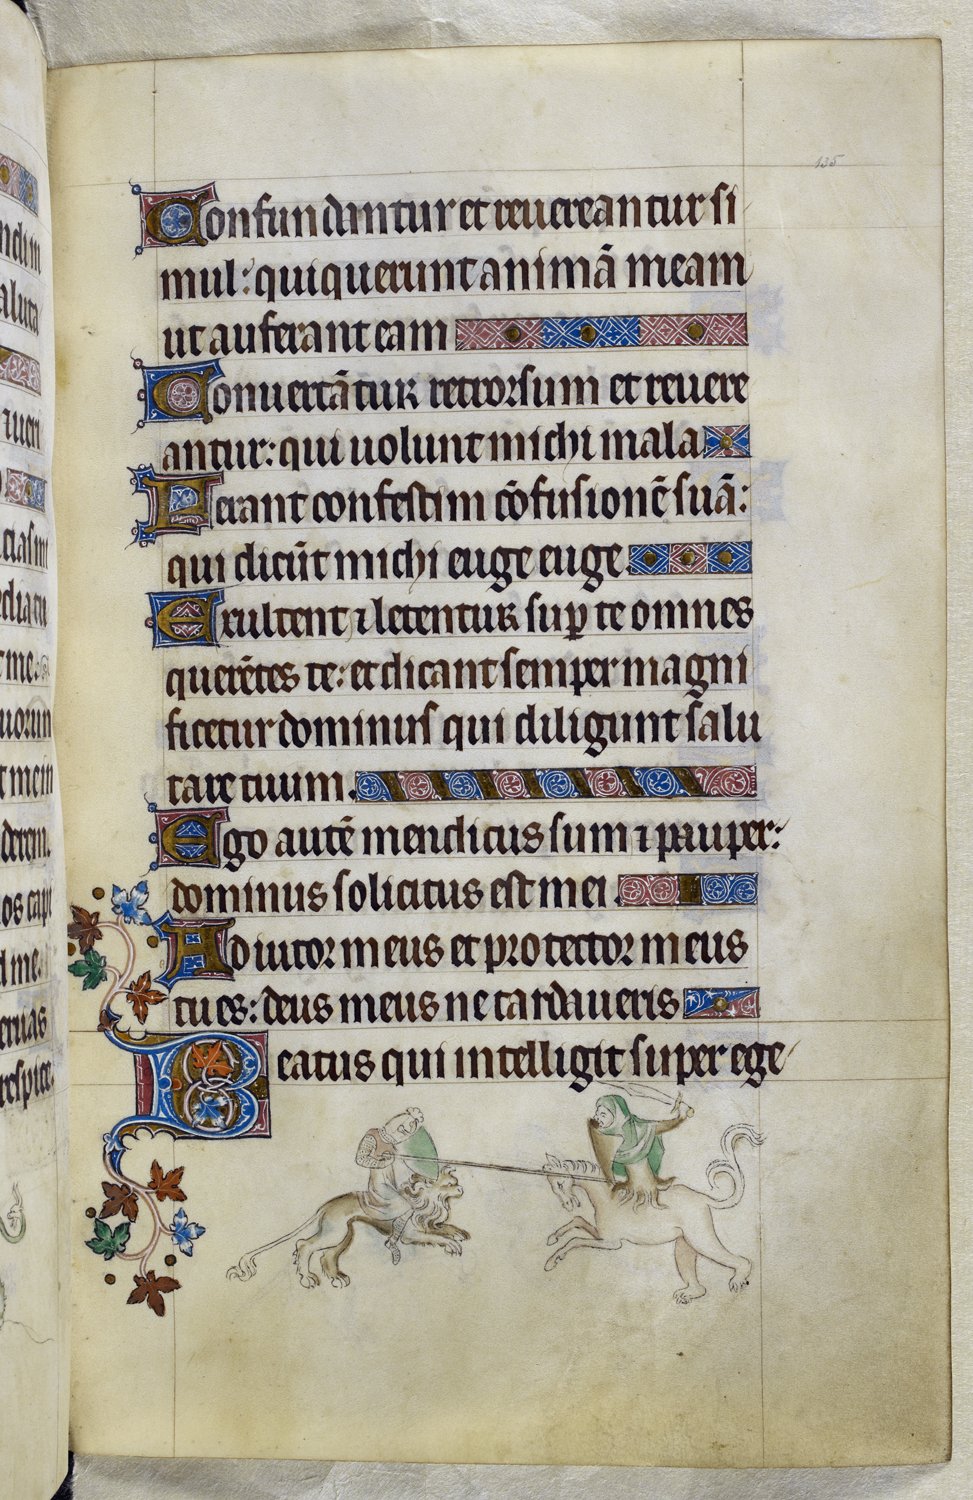 135
Confundantur et reuereantur si
mul: qui querunt animā meam
ut auferant eam
Conuertātur retrorsum et reuere
antur: qui uolunt michi mala
Ferant confestim cōfusionē suā:
qui dicūt michi euge euge.
Exultent ⁊ letentur sup̱ te omnes
querētes te: et dicant semper magni
ficetur dominus qui diligunt salu
tare tuum.
Ego autē mendicus sum ⁊ pauper:
dominus solicitus est mei.
Adiutor meus et protector meus
tu es: deus meus ne tardaueris
Beatus qui intelligit super ege